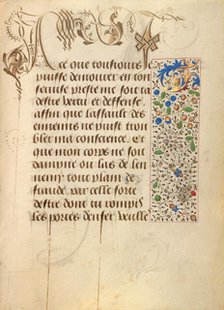 A ce que tousiours ie
puisse demourer en ton
seruise preste moy ton
dextre vertu et deffense
affin que lassault des
ennemis ne puist trou
bler ma conscience. Et
que mon corps ne soit
dampne ou las de len
nemy tout plain de
fraude. par celle forte
dextre dont tu rompis
les portes denfer veille